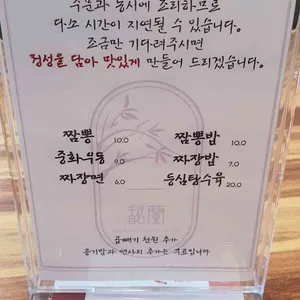 주문과 동시에 조리하므로
다소 시간이 지연될 수 있습니다.
조금만 기다려주시면
정성을 담아 맛있게 만들어 드리겠습니다.
짬뽕 10.0 짬뽕밥 10.0
중화우동 9.0 짜장밥 7.0
짜장면 6.0 등심탕수육 20.0
곱빼기 천원 추가
공기밥과 면사리 추가는 무료입니다